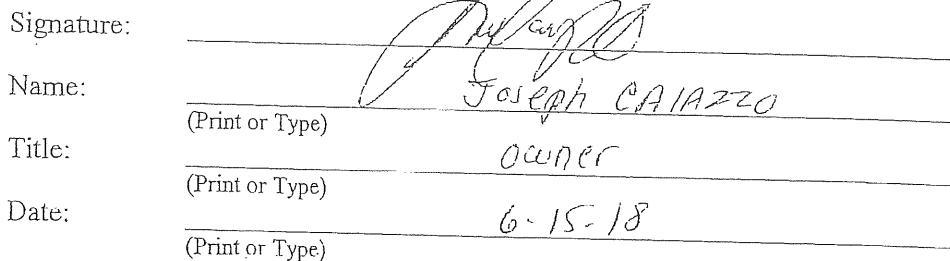 Signature:
Name: Joseph CAIAZZO
(Print or Type)
Title: owner
(Print or Type)
Date: 6-15-18
(Print or Type)